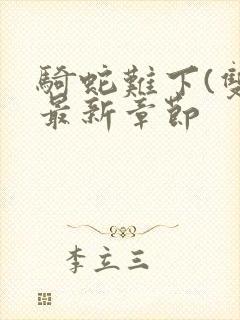 騎蛇難下(雙
最新章節
李立三